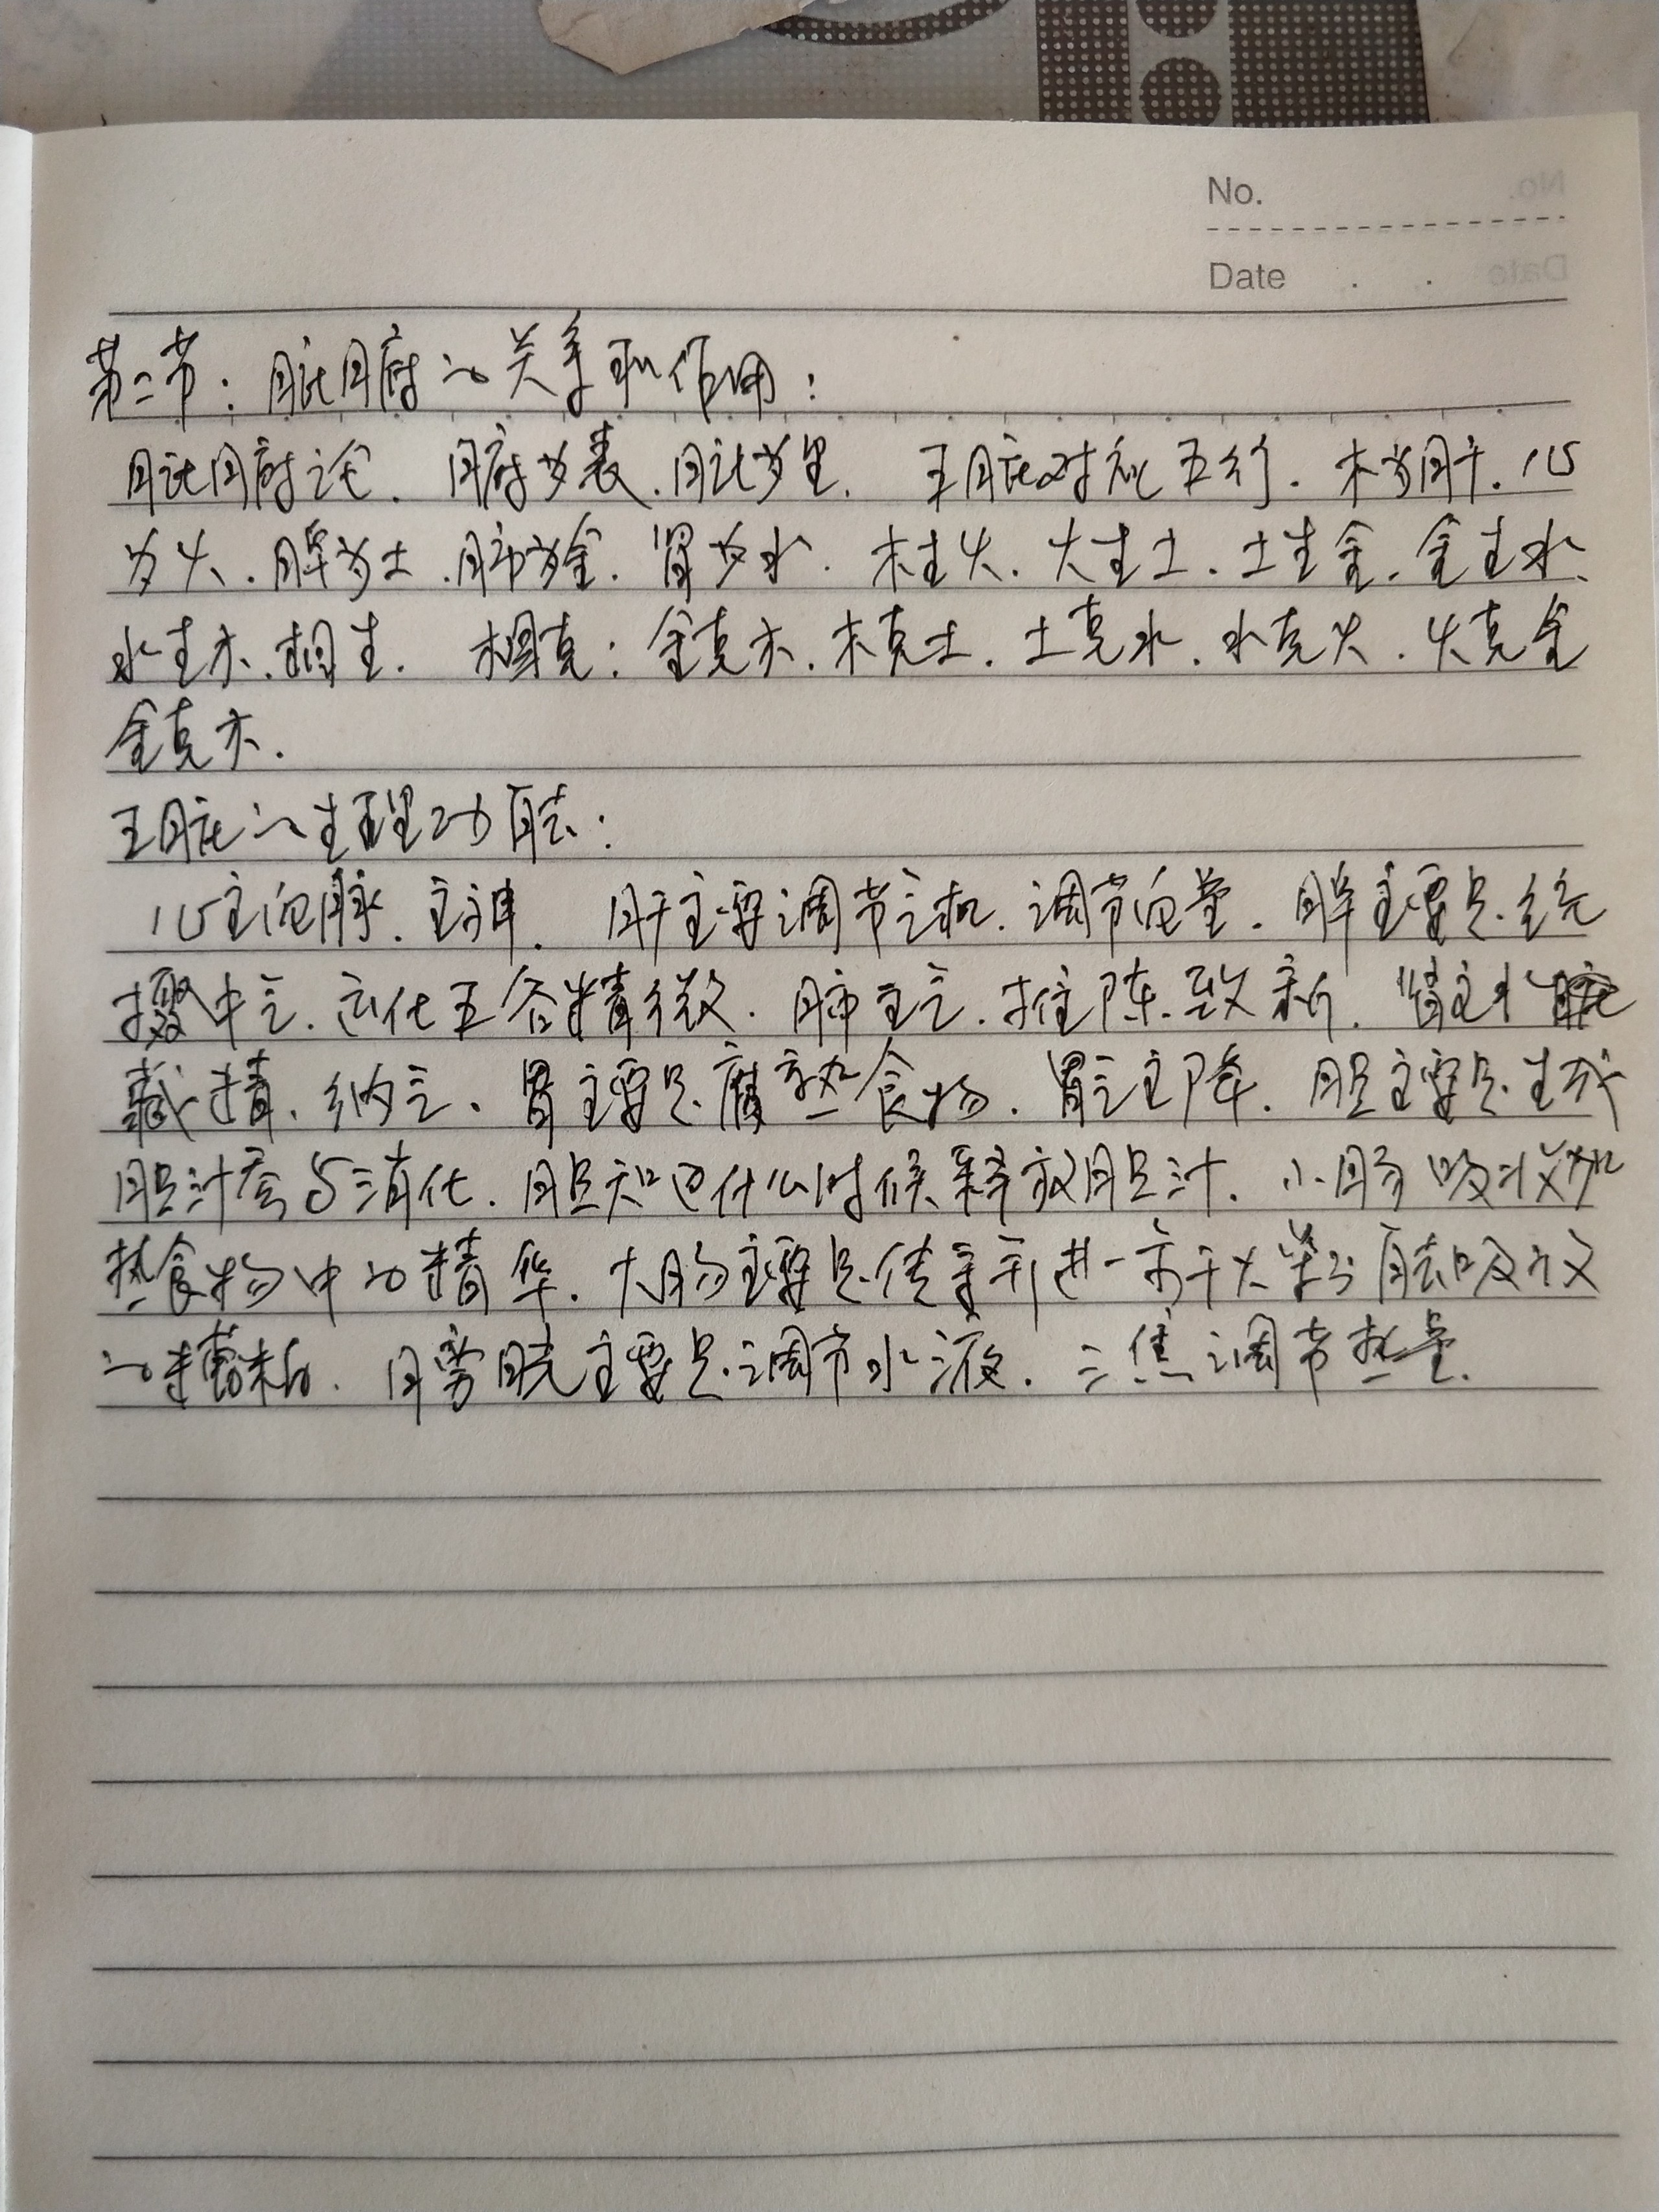 No.
Date . .
第二节：脏腑的关系和作用：
脏腑论.腑为表.脏为里.五脏对应五行.木为肝.心
为火.脾为土.肺为金.肾为水.木生火.火生土.土生金.金生水.
水生木.相生.相克：金克木.木克土.土克水.水克火.火克金
金克木.
五脏的生理功能：
心主血脉.主神.肝主要调节气机.调节血量.脾主要是统
摄中气.运化五谷精微.肺主气.推陈致新.肾主水
藏精.纳气.胃主要是腐熟食物.胃气主降.胆主要是生成
胆汁参与消化.胆知道什么时候释放胆汁.小肠吸收
热食物中的精华.大肠主要是传导和进一步干大肠能吸收
的糟粕.膀胱主要是调节水液.三焦调节热量.